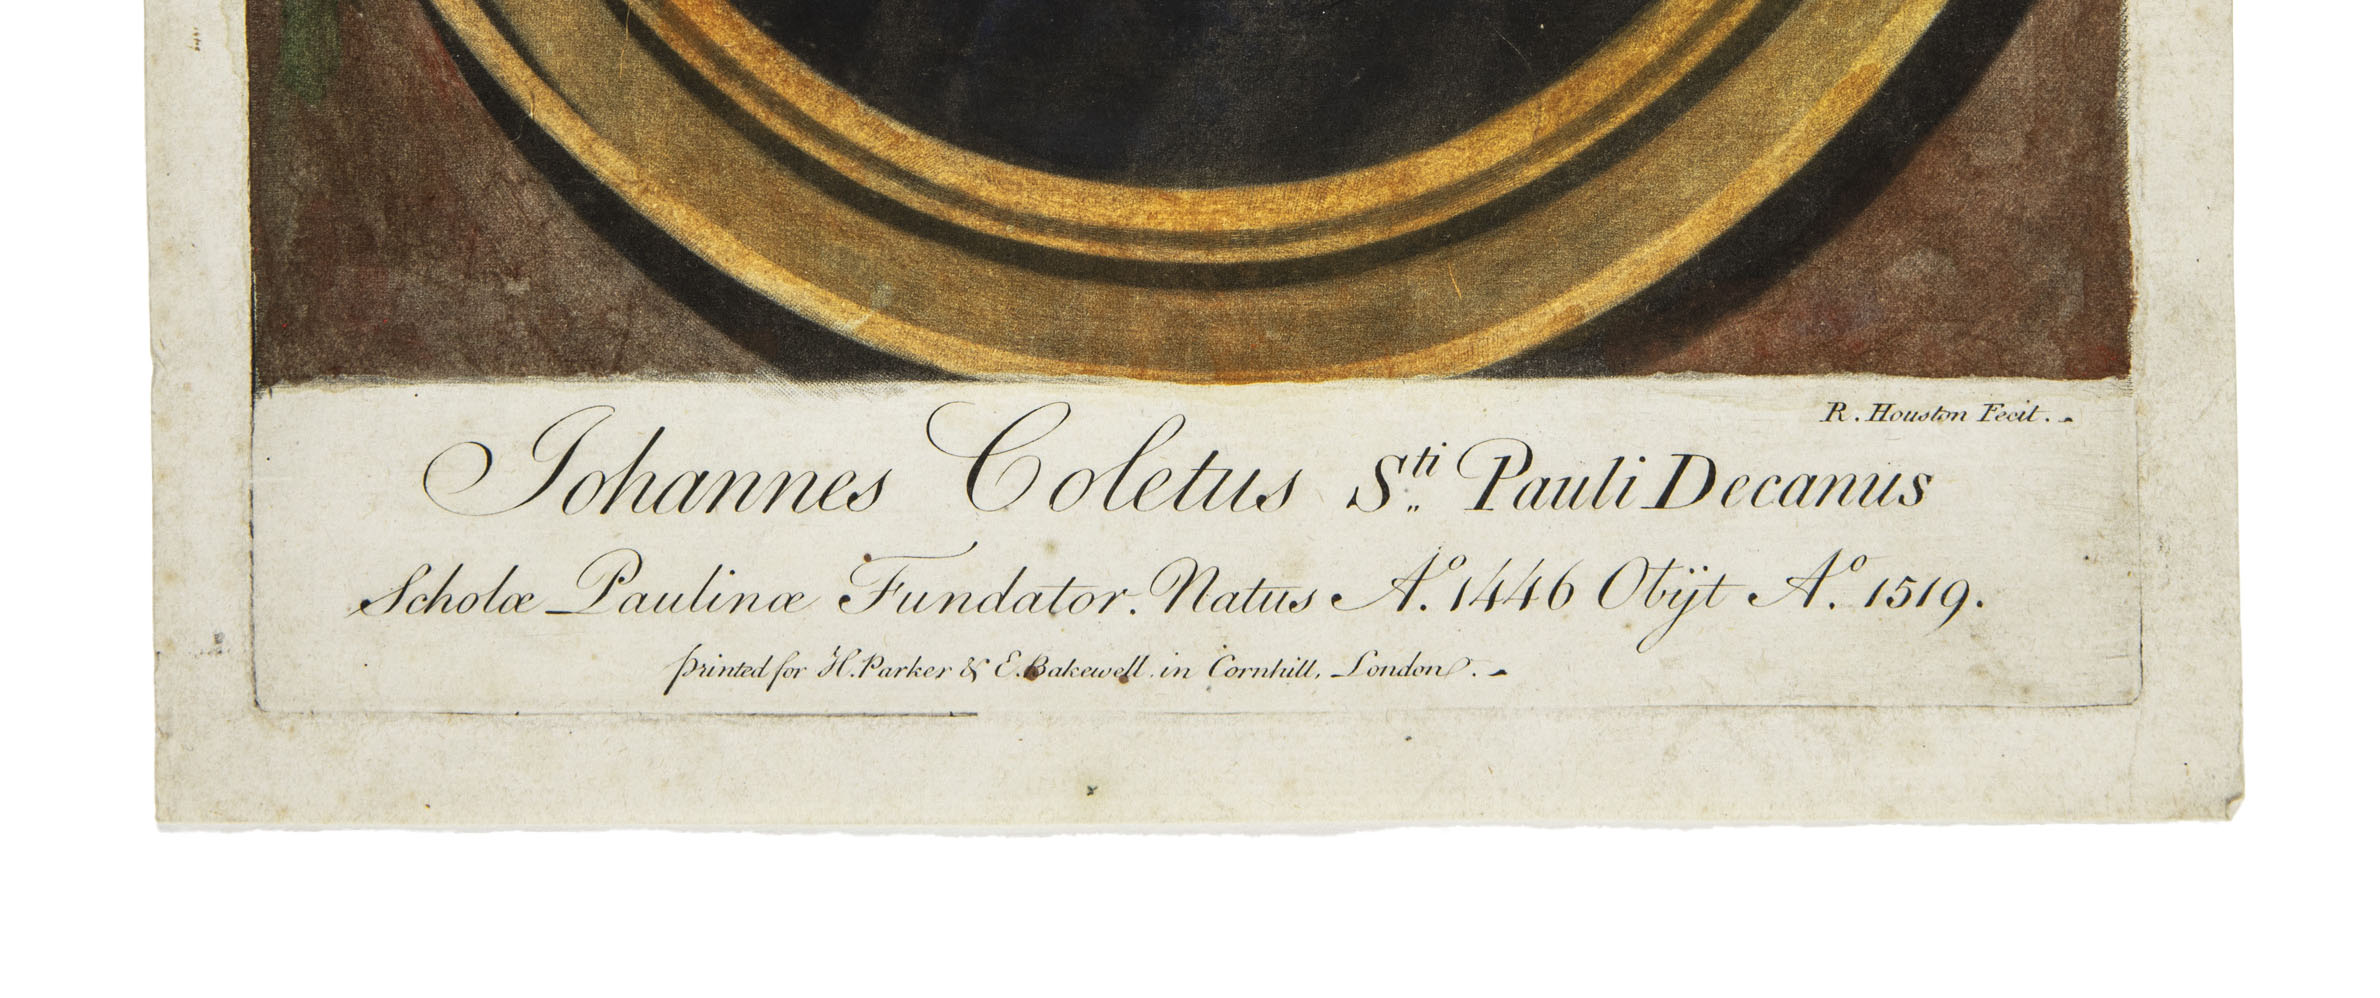 R. Houston Fecit.
Johannes Coletus Sti Pauli Decanus
Scholæ Paulinæ Fundator. Natus Ao. 1446 Obijt Ao. 1519.
Printed for H. Parker & E. Bakewell in Cornhill, London.